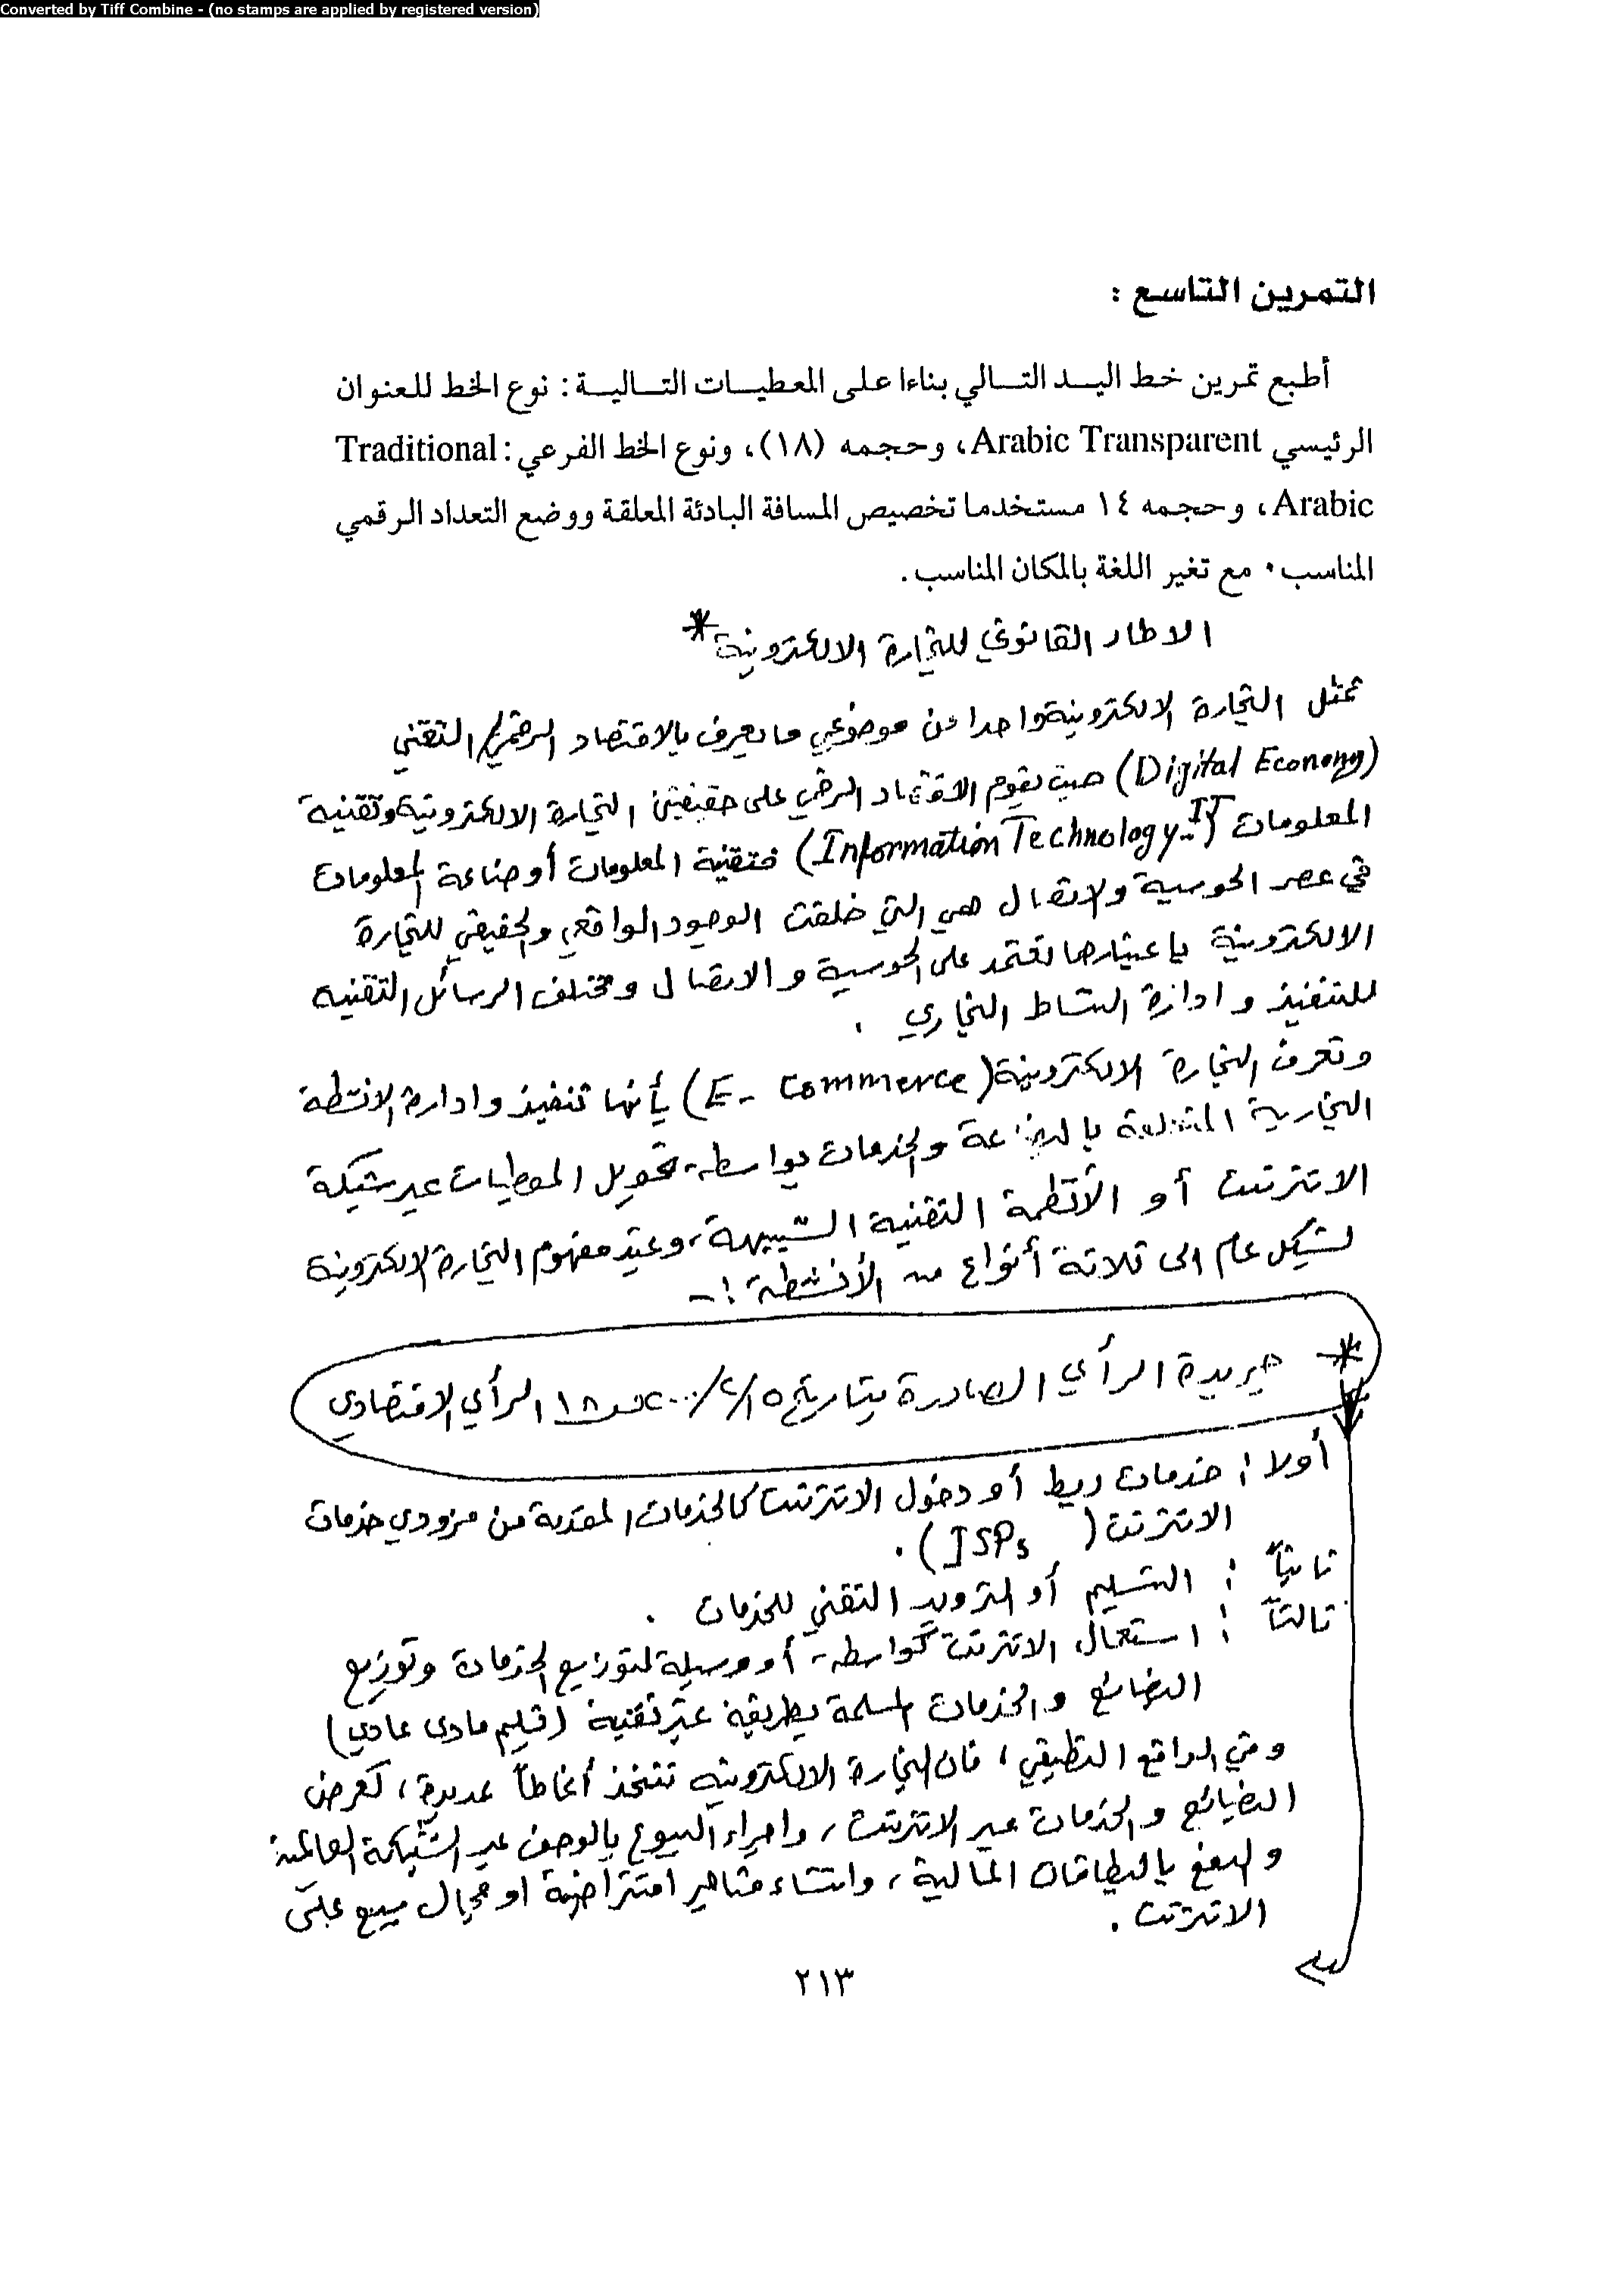 Converted by Tiff Combine - (no stamps are applied by registered version)
التمرين التاسع :
أطبع تمرين خط اليد التالي بناءا على المعطيات التالية : نوع الخط للعنوان
الرئيسي Arabic Transparent، وحجمه (١٨)، ونوع الخط الفرعي : Traditional
Arabic، وحجمه ١٤ مستخدما تخصيص المسافة البادئة المعلقة ووضع التعداد الرقمي
المناسب . مع تغير اللغة بالمكان المناسب .
الاطار القانوني للتجارة الالكترونية *
تمثل التجارة الالكترونية واحدا من موضوعي ما يعرف بالاقتصاد الرقمي / التقني
(Digital Economy) حيث يقوم الاقتصاد الرقمي على حقيقتين التجارة الالكترونية وتقنية
المعلومات (Information Technology - IT) فتقنية المعلومات أو صناعة المعلومات
في عصر الحوسبة والاتصال هي التي خلقت الوجود الواقعي والحقيقي للتجارة
الالكترونية باعتبارها تعتمد على الحوسبة والاتصال ومختلف الوسائل التقنية
للتنفيذ وادارة النشاط التجاري .
وتعرف التجارة الالكترونية (E- Commerce) بأنها تنفيذ وادارة الانشطة
التجارية المتعلقة بالبضاعة والخدمات بواسطة تحويل المعطيات عبر شبكة
الانترنت أو الأنظمة التقنية الشبيهة، ويمتد مفهوم التجارة الالكترونية
بشكل عام الى ثلاثة أنواع من الأنشطة :-
* جريدة الرأي الصادرة بتاريخ ١٥/٢/٢٠٠٠ ص ١٨ الرأي الاقتصادي
أولا : خدمات ربط أو دخول الانترنت كالخدمات المقدمة من مزودي خدمات
الانترنت (ISPs) .
ثانياً : التسليم أو التزويد التقني للخدمات .
ثالثاً : استعمال الانترنت كواسطة أو وسيلة لتوزيع الخدمات وتوزيع
البضائع والخدمات المسلمة بطريقة غير تقنية (تسليم مادي عادي)
وفي الواقع التطبيقي ، فان التجارة الالكترونية تتخذ أنماطاً عديدة ، كعرض
البضائع والخدمات عبر الانترنت ، واجراء البيوع بالوصف عبر الشبكة العالمية
والدفع بالبطاقات المالية ، وانشاء متاجر افتراضية او محال بيع على
الانترنت .
٢١٣